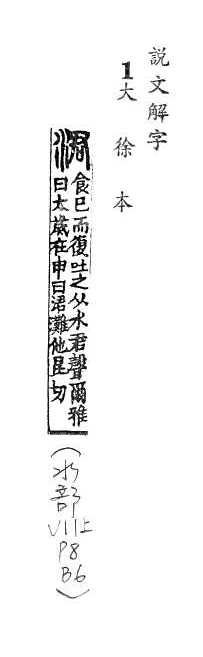 説文解字
1大徐本
涒食已而復吐之从水君聲爾雅
曰太歲在申曰涒灘他昆切
(水部
VII上
P8
B6)